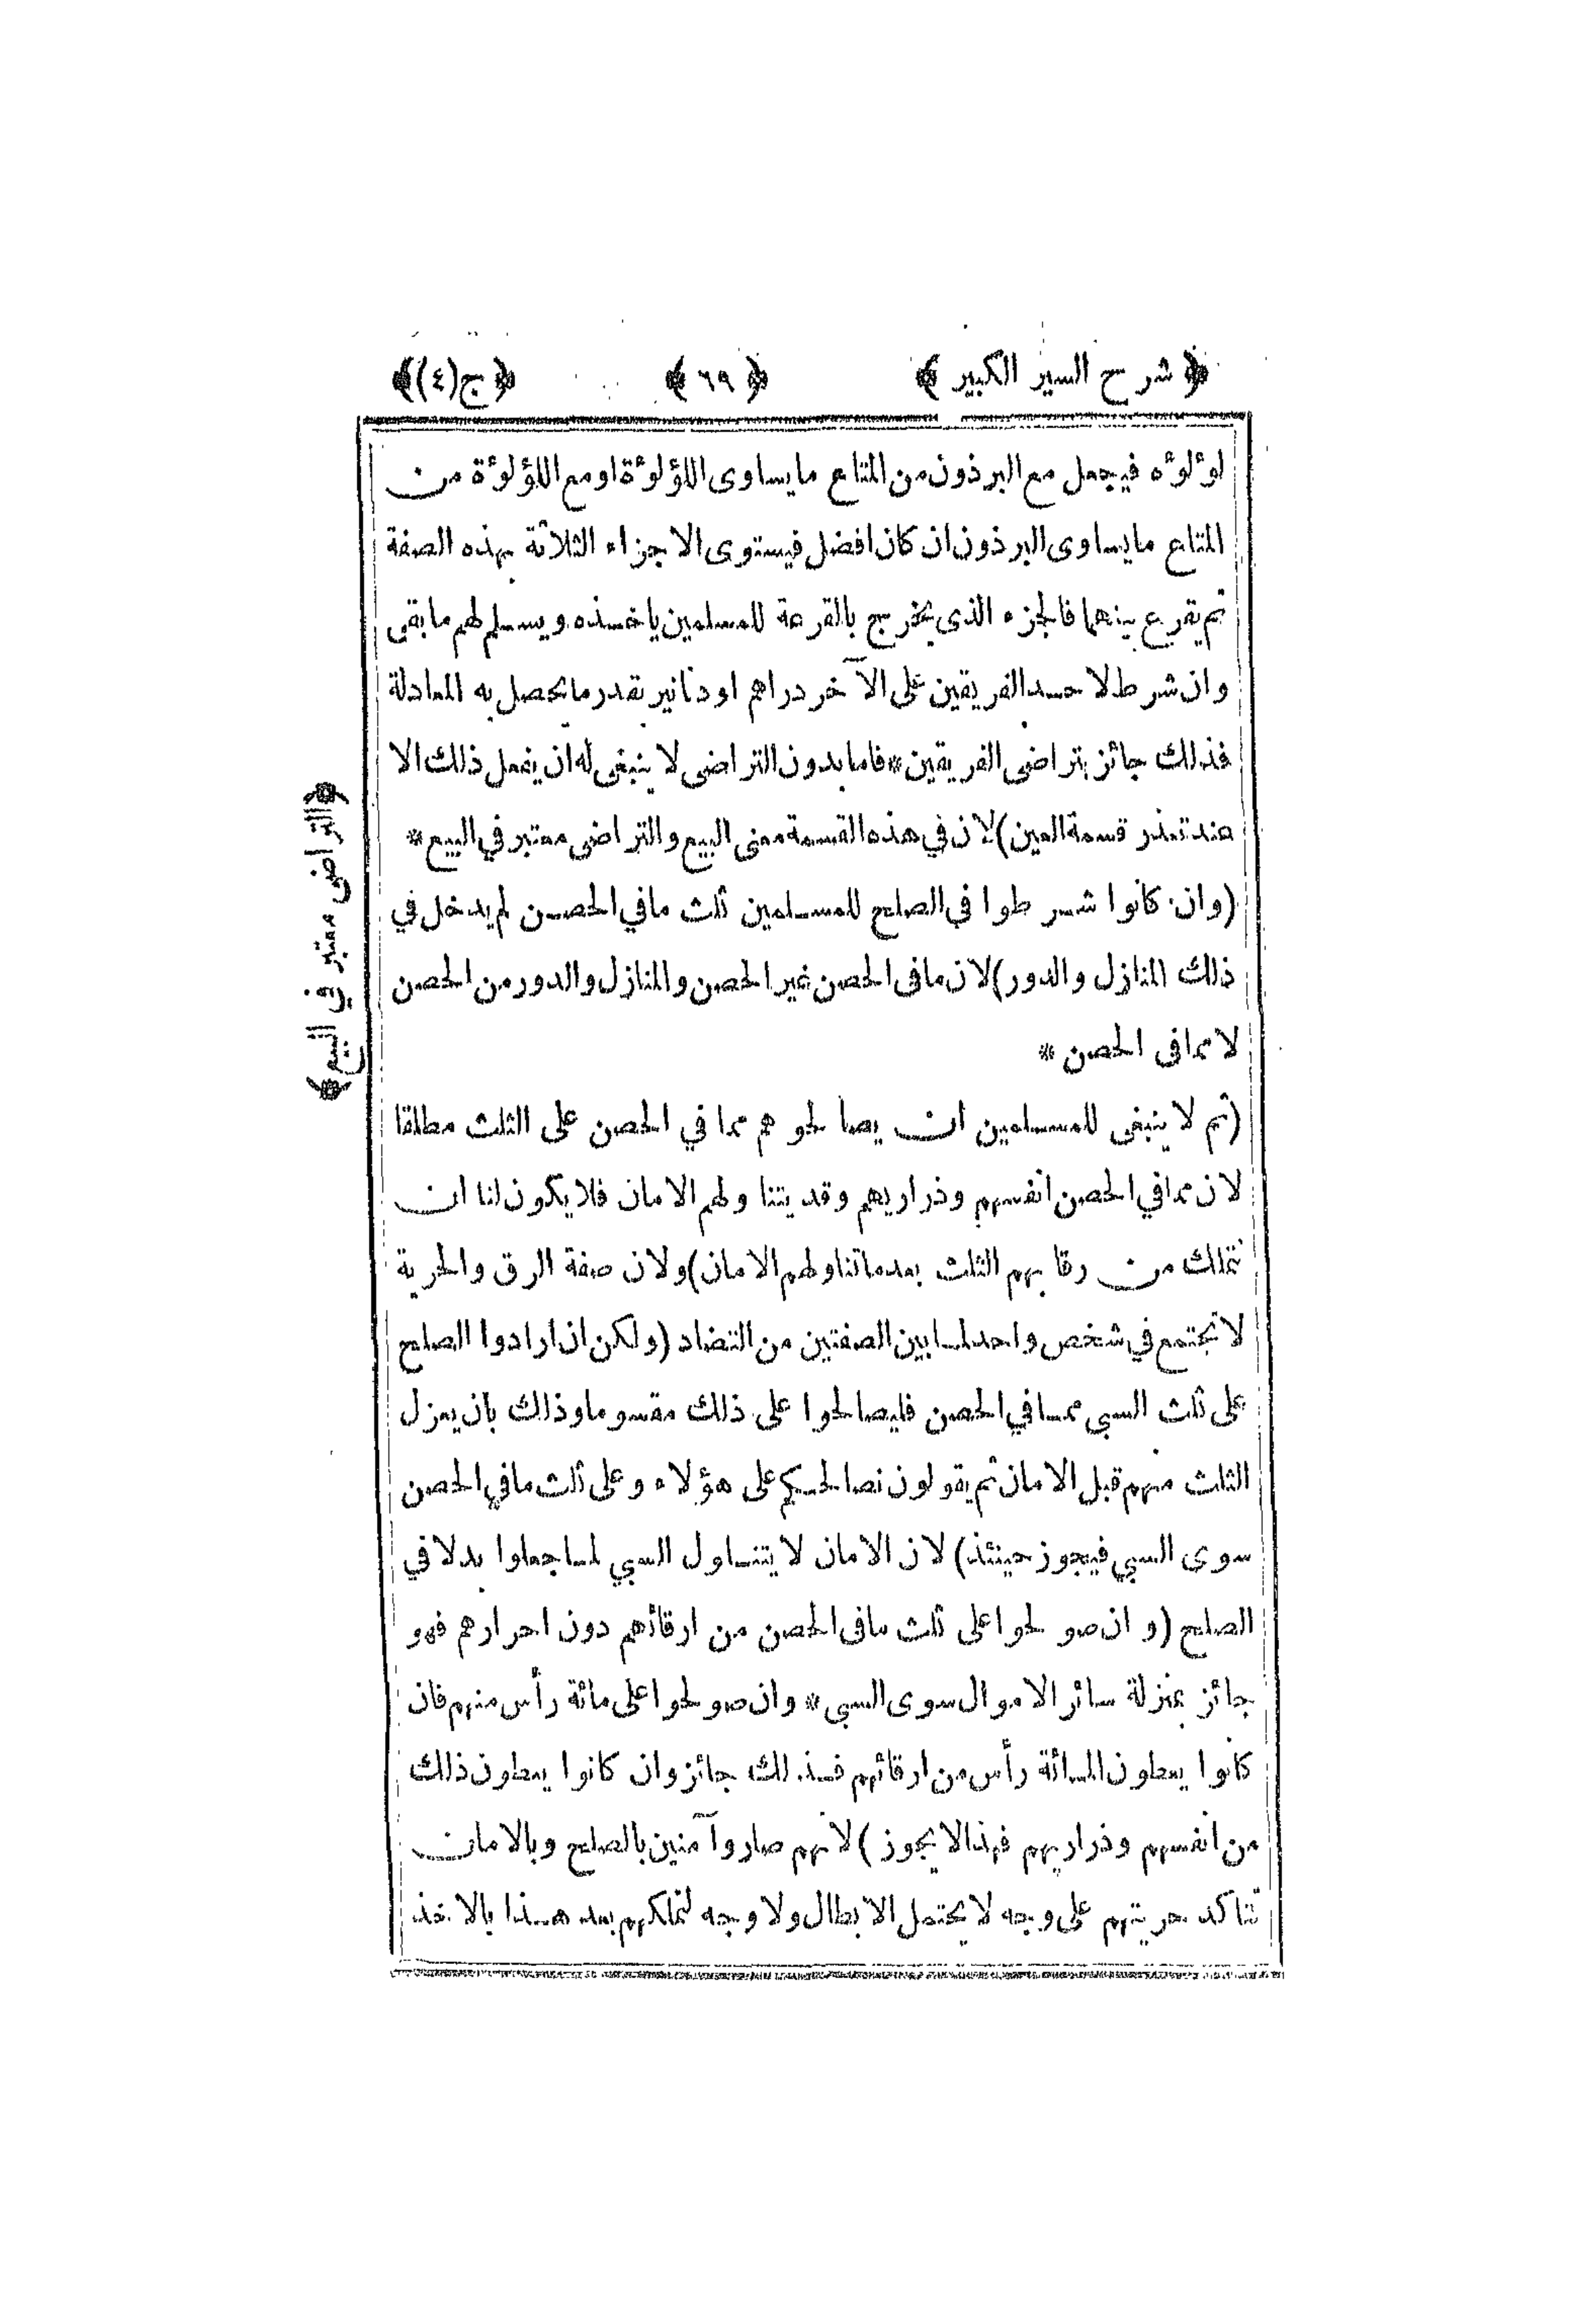 ﴿ شرح السير الكبير ﴾ ﴿ ٦٩ ﴾ ﴿ ج(٤) ﴾
لؤلؤه فيجعل مع البرذون من المتاع مايساوى اللؤلؤة اومع اللؤلؤة من
المتاع مايساوى البرذون ان كان افضل فيستوى الاجزاء الثلاثة بهذه الصفة
ثم يقرع بينهما فالجزء الذى يخرج بالقرعة للمسلمين ياخذه ويسلم لهم مابقى
وان شرط لاحد الفريقين على الآخر دراهم اودنانير بقدر مايحصل به المعادلة
فذلك جائز بتراضى الفريقين * فاما بدون التراضى لا ينبغى له ان يفعل ذلك الا
عند تعذر قسمة العين) لان في هذه القسمة معنى البيع والتراضى معتبر في البيع *
(وان كانوا شرطوا في الصلح للمسلمين ثلث مافي الحصن لم يدخل في
ذلك المنازل والدور) لان مافى الحصن غير الحصن والمنازل والدور من الحصن
لامما فى الحصن *
(ثم لا ينبغى للمسلمين ان يصالحوهم مما في الحصن على الثلث مطلقا
لان مما في الحصن انفسهم وذراريهم وقد يتناولهم الامان فلا يكون لنا ان
نتملك من رقابهم الثلث بعد ماتناولهم الامان) ولان صفة الرق والحرية
لا تجتمع في شخص واحد لما بين الصفتين من التضاد (ولكن ان ارادوا الصلح
على ثلث السبي مما في الحصن فليصالحوا على ذلك مقسوما وذلك بان يعزل
الثلث منهم قبل الامان ثم يقولون نصالحكم على هؤلاء وعلى ثلث مافي الحصن
سوى السبي فيجوز حينئذ) لان الامان لا يتناول السبي لما جعلوا بدلا في
الصلح (وان صولحوا على ثلث مافى الحصن من ارقائهم دون احرارهم فهو
جائز بمنزلة سائر الاموال سوى السبى * وان صولحوا على مائة رأس منهم فان
كانوا يعطون المائة رأس من ارقائهم فذلك جائز وان كانوا يعطون ذلك
من انفسهم وذراريهم فهذا لا يجوز) لانهم صاروا آمنين بالصلح وبالامان
تتاكد حريتهم على وجه لا يحتمل الابطال ولا وجه لتملكهم بعد هذا بالاخذ
﴿التراضى معتبر في البيع﴾